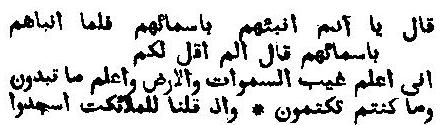 قال يا آدم انبئهم باسمائهم فلما انباهم
باسمائهم قال الم اقل لكم
انى اعلم غيب السموات والارض واعلم ما تبدون
وما كنتم تكتمون * واذ قلنا للملائكت اسجدوا